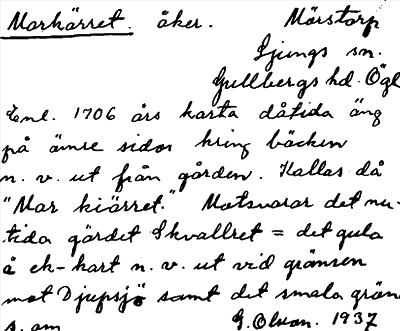 Markärret. åker. Mårstorp
Ljungs sn.
Gullbergs hd. Ögl
Enl. 1706 års karta dåtida äng
på ömse sidor kring bäcken
n. v. ut från gården. Kallas då
"Mar kiärret." Motsvarar det nu-
tida gärdet Skvallret = det gula
å ek-kart n. v. ut vid gränsen
mot Djupsjö samt det smala grän
s. om G. Olson. 1937